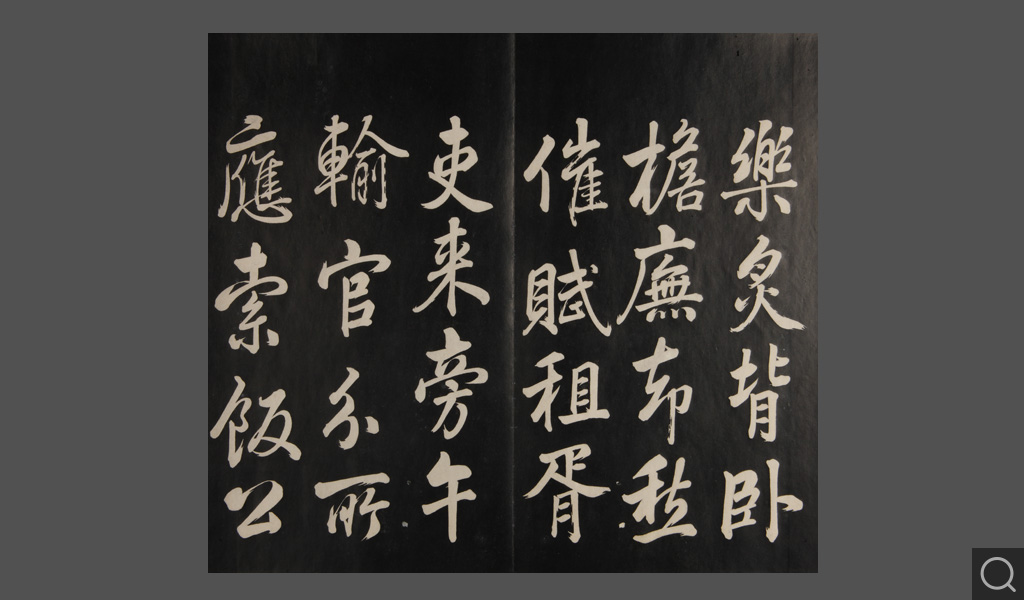 樂炙背卧
檐廡却愁
催賦租胥
吏来旁午
輸官分所
應索飯公